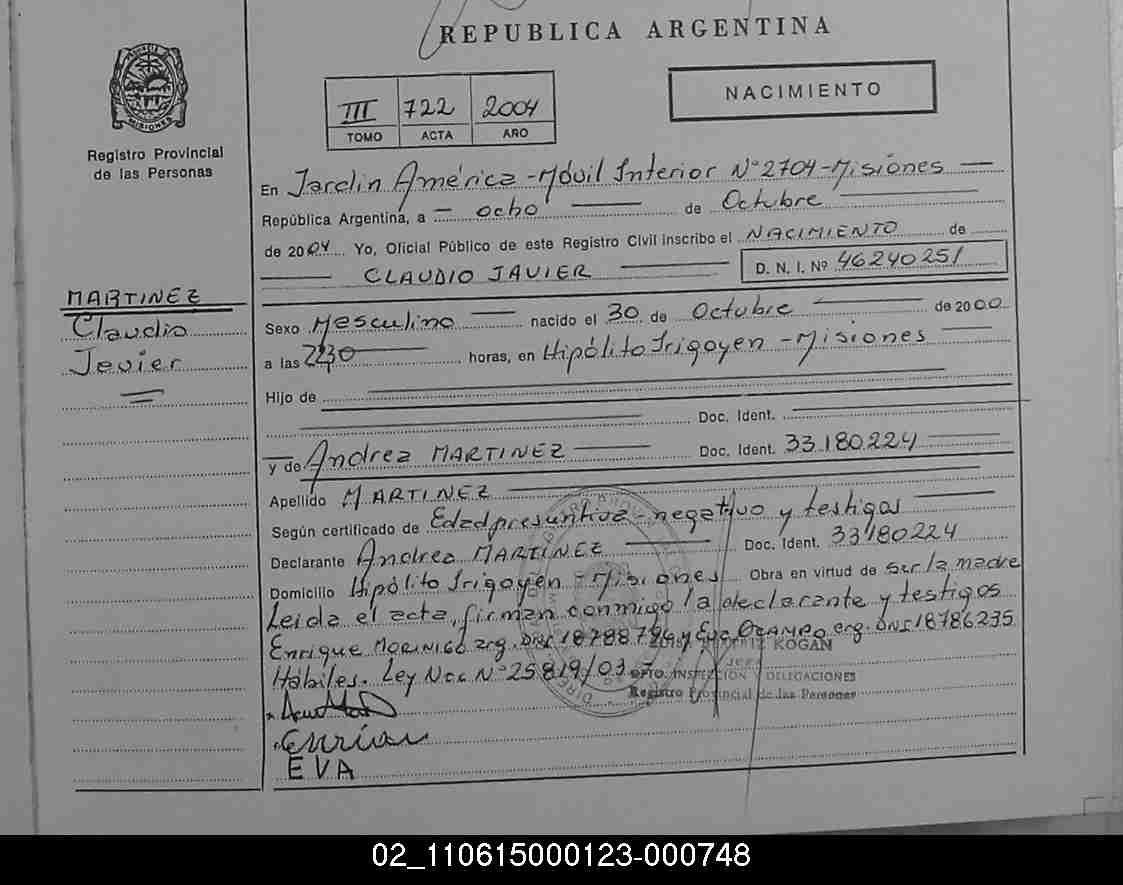 REPUBLICA ARGENTINA
MISIONES
Registro Provincial
de las Personas
III 722 2004
TOMO ACTA AÑO
NACIMIENTO
En Jardín América - Móvil Interior Nº 2704 - Misiones
República Argentina, a ocho de Octubre
de 2004 Yo, Oficial Público de este Registro Civil inscribo el NACIMIENTO de
CLAUDIO JAVIER D. N. I. Nº 46240251
MARTINEZ
Claudio
Javier
Sexo Masculino nacido el 30 de Octubre de 2000
a las 2230 horas, en Hipólito Irigoyen - Misiones
Hijo de
Doc. Ident.
y de Andrea MARTINEZ Doc. Ident. 33.180.224
Apellido MARTINEZ
Según certificado de Edad presuntiva - negativo y testigos
Declarante Andrea MARTINEZ Doc. Ident. 33180224
Domicilio Hipólito Irigoyen - Misiones Obra en virtud de Ser la madre
Leida el acta, firman conmigo la declarante y testigos
Enrique MORINIGO arg. DNI 18788 y Eva OCAMPO arg. DNI 18786235
Hábiles. Ley Nac Nº 25819/03
KOGAN
JEFE
DPTO. INSPECCION Y DELEGACIONES
Registro Provincial de las Personas
EVA
02_110615000123-000748